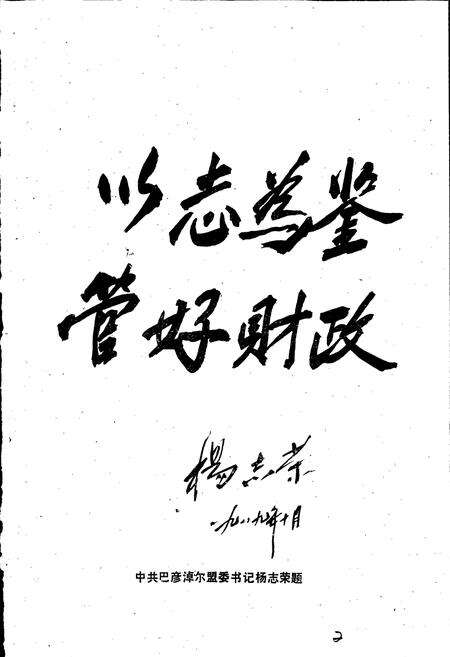 以志為鉴
管好财政
杨志荣
一九八九年十月
中共巴彦淖尔盟委书记杨志荣题
2